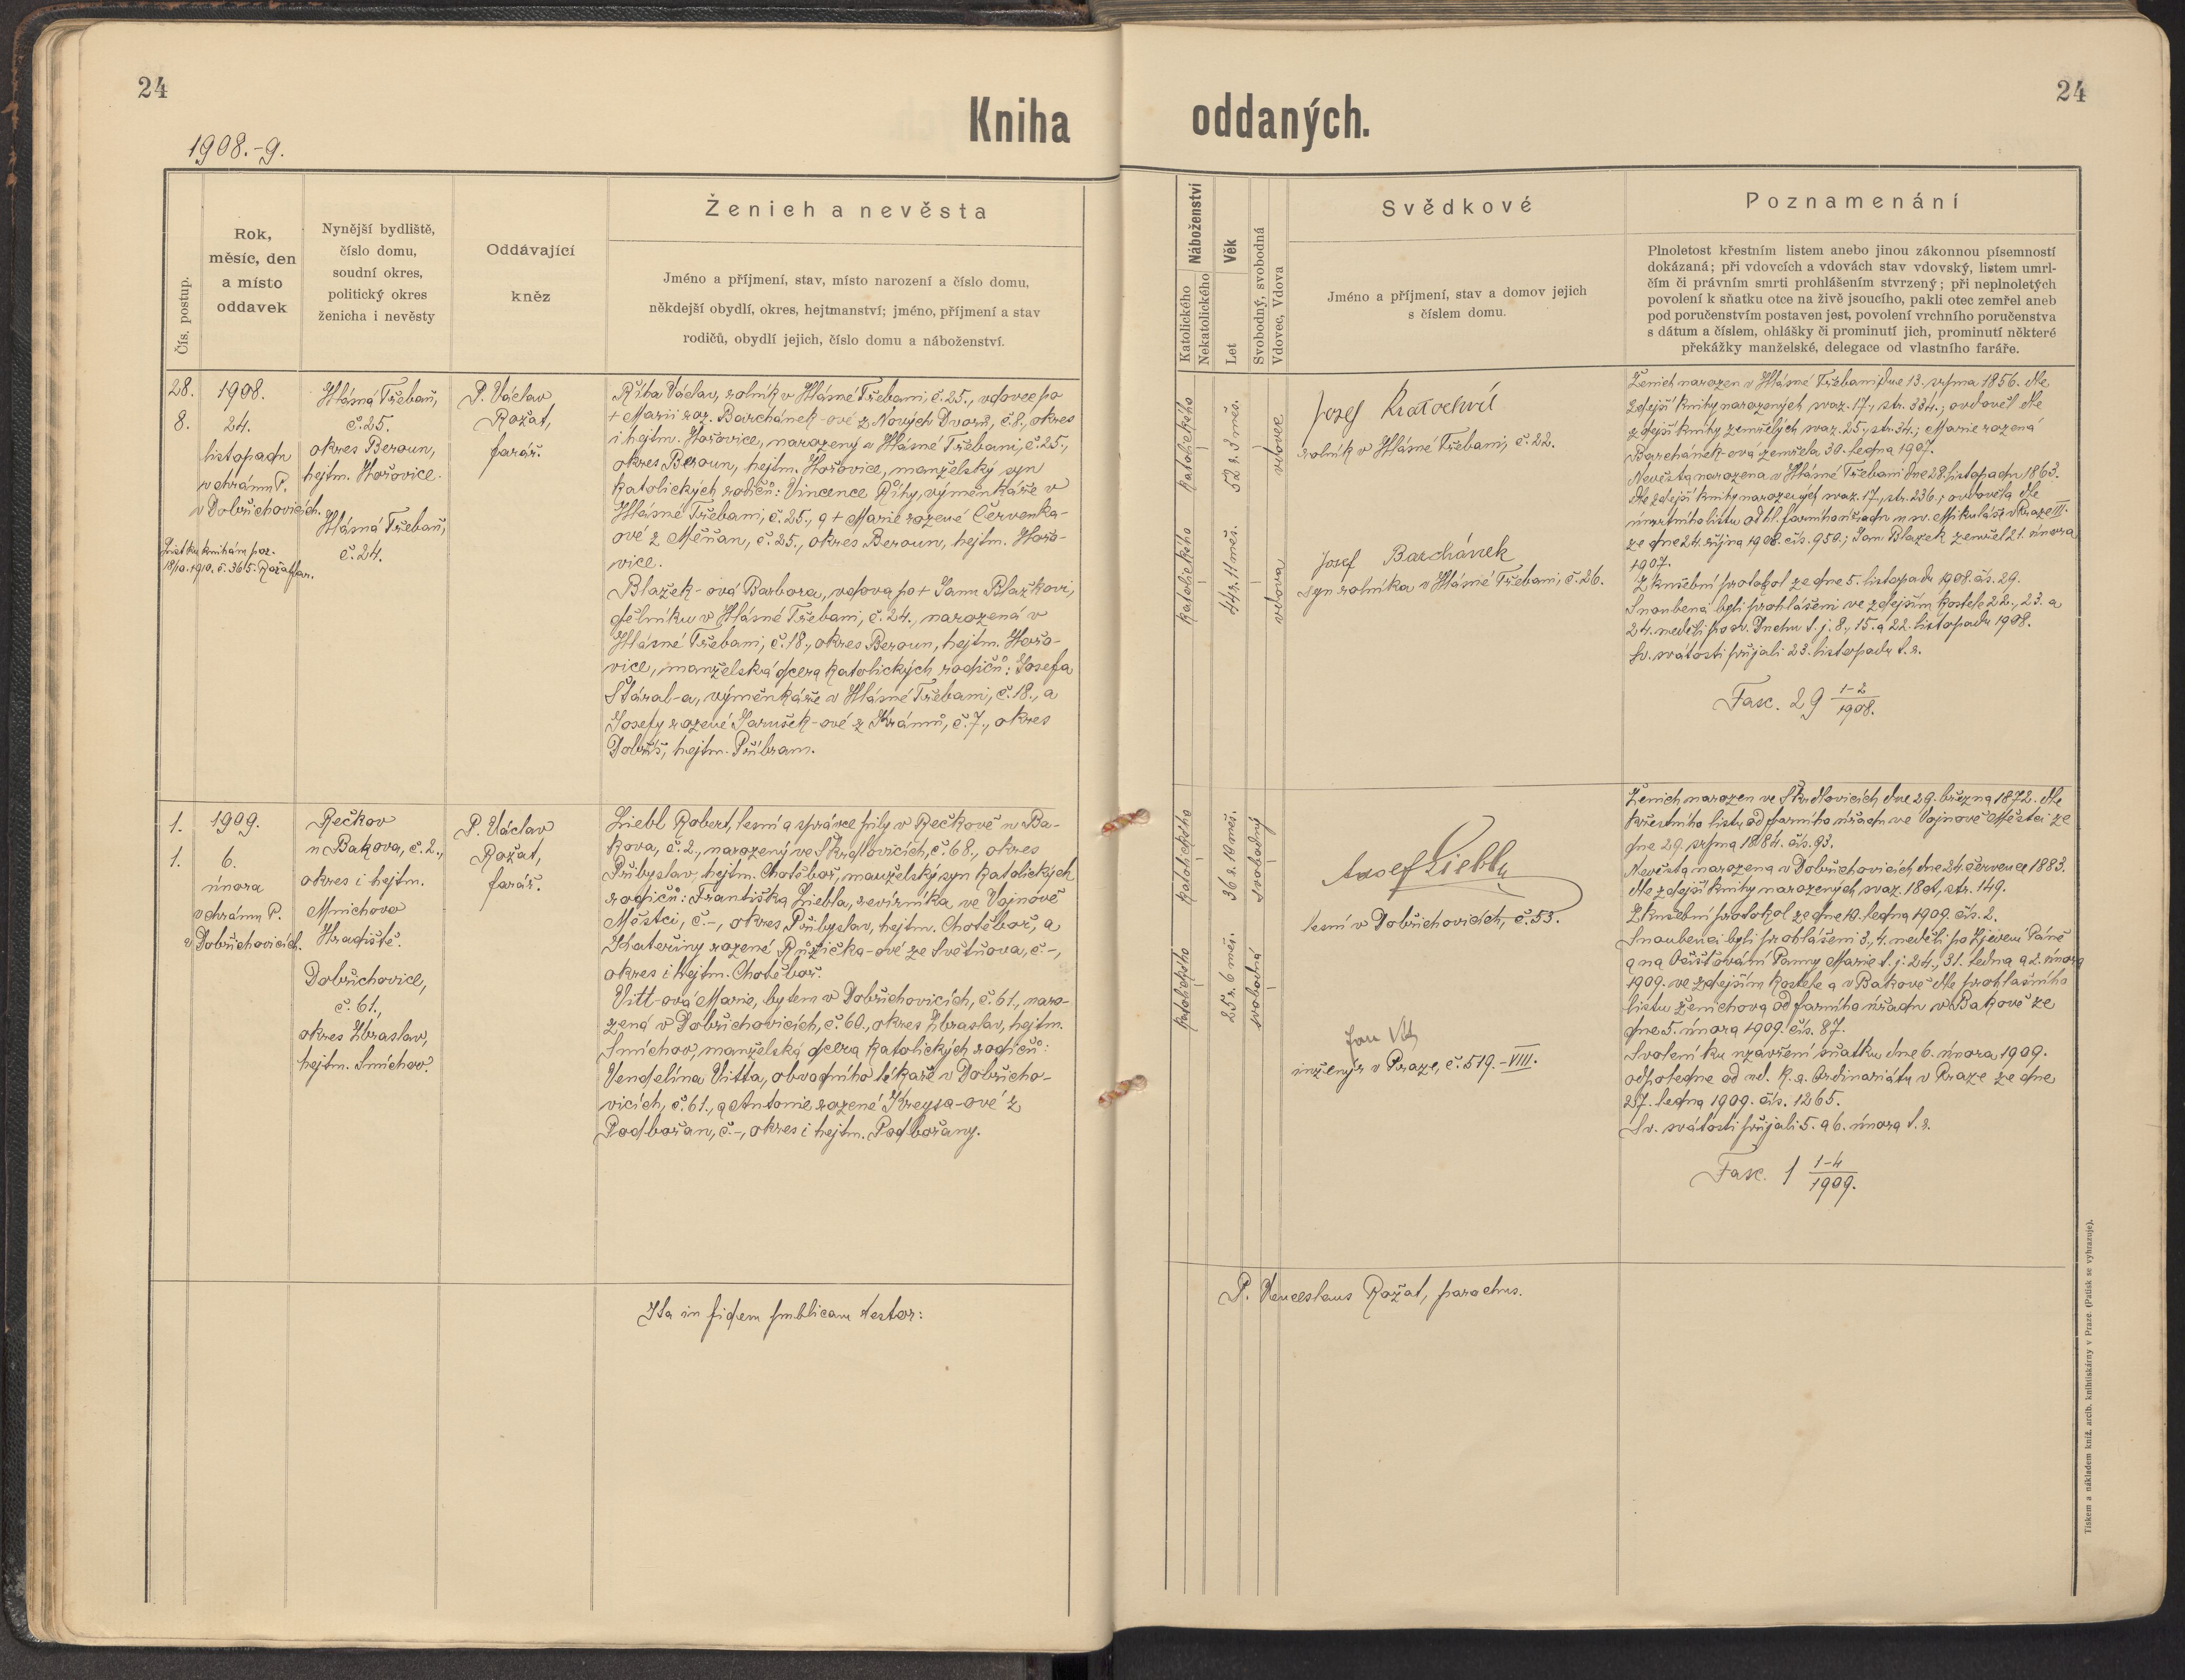 24
24
Kniha oddaných.
1908.-9.
Čís. postup.
Rok,
měsíc, den
a místo
oddavek
Nynější bydliště,
číslo domu,
soudní okres,
politický okres
ženicha i nevěsty
Oddávající
kněz
Ženich a nevěsta
Jméno a příjmení, stav, místo narození a číslo domu,
někdejší obydlí, okres, hejtmanství; jméno, příjmení a stav
rodičů, obydlí jejich, číslo domu a náboženství.
Náboženství
Katolického
Nekatolického
Věk
Let
Svobodný, svobodná
Vdovec, Vdova
Svědkové
Jméno a příjmení, stav a domov jejich
s číslem domu.
Poznamenání
Plnoletost křestním listem anebo jinou zákonnou písemností
dokázaná; při vdovcích a vdovách stav vdovský, listem umrl-
čím či právním smrti prohlášením stvrzený; při neplnoletých
povolení k sňatku otce na živě jsoucího, pakli otec zemřel aneb
pod poručenstvím postaven jest, povolení vrchního poručenstva
s dátum a číslem, ohlášky či prominutí jich, prominutí některé
překážky manželské, delegace od vlastního faráře.
28.
8.
1908.
24.
listopadu
v chrámu P.
v Dobřichovicích.
List ku knihám poz.
18/10. 1910. č. 365. Rožat far.
Hlásná Třebaň,
č. 25.
okres Beroun,
hejtm. Hořovice.
Hlásná Třebaň,
č. 24.
P. Václav
Rožat,
farář.
Říha Václav, rolník v Hlásné Třebani, č. 25., vdovec po
+ Marii roz. Barchánek-ové z Nových Dvorů, č. 8., okres
i hejtm. Hořovice, narozený v Hlásné Třebani, č. 25.,
okres Beroun, hejtm. Hořovice, manželský syn
katolických rodičů: Vincence Říhy, výměnkáře v
Hlásné Třebani, č. 25., a + Marie rozené Červenka-
ové z Měňan, č. 25., okres Beroun, hejtm. Hořo-
vice.
Blažek-ová Barbora, vdova po + Janu Blažkovi,
dělníku v Hlásné Třebani, č. 24., narozená v
Hlásné Třebani, č. 18., okres Beroun, hejtm. Hořo-
vice, manželská dcera katolických rodičů: Josefa
Štáral-a, výměnkáře v Hlásné Třebani, č. 18., a
Josefy rozené Jarušek-ové z Krámů, č. 7., okres
Dobříš, hejtm. Příbram.
katolického
52 r. 3 měs.
vdovec
katolického
44 r. 11 měs.
vdova
Josef Kratochvíl
rolník v Hlásné Třebani, č. 22.
Josef Barchánek
syn rolníka v Hlásné Třebani, č. 26.
Ženich narozen v Hlásné Třebani dne 13. srpna 1856. dle
zdejší knihy narozených svaz. 17., str. 334.; ovdověl dle
zdejší knihy zemřelých svaz. 25., str. 34.; Marie rozená
Barchánek-ová zemřela 30. ledna 1907.
Nevěsta narozena v Hlásné Třebani dne 28. listopadu 1863.
dle zdejší knihy narozených svaz. 17., str. 236.; ovdověla dle
úmrtního listu od hl. farního úřadu u sv. Mikuláše v Praze III.
ze dne 24. října 1908. čís. 950.; Jan Blažek zemřel 21. února
1907.
Zkušební protokol ze dne 5. listopadu 1908. čís. 29.
Snoubenci byli prohlášeni ve zdejším kostele 22., 23. a
24. neděli po sv. Duchu t. j. 8., 15. a 22. listopadu 1908.
Sv. svátosti přijali 23. listopadu t. r.
Fasc. 29 1-2/1908.
1.
1.
1909.
6.
února
v chrámu P.
v Dobřichovicích.
Rečkov
u Bakova, č. 2.,
okres i hejtm.
Mnichovo
Hradiště.
Dobřichovice,
č. 61.,
okres Zbraslav,
hejtm. Smíchov.
P. Václav
Rožat,
farář.
Liebl Robert, lesní a správce pily v Rečkově u Ba-
kova, č. 2., narozený ve Škrdlovicích, č. 68., okres
Přibyslav, hejtm. Chotěboř, manželský syn katolických
rodičů: Františka Liebla, revírníka ve Vojnově
Městci, č.-, okres Přibyslav, hejtm. Chotěboř, a
Kateřiny rozené Růžička-ové ze Světňova, č.-,
okres i hejtm. Chotěboř.
Vitt-ová Marie, bytem v Dobřichovicích, č. 61., naro-
zená v Dobřichovicích, č. 60., okres Zbraslav, hejtm.
Smíchov, manželská dcera katolických rodičů:
Vendelína Vitta, obvodního lékaře v Dobřicho-
vicích, č. 61., a Antonie rozené Kreysa-ové z
Podbořan, č.-, okres i hejtm. Podbořany.
katolického
36 r. 10 měs.
svobodný
katolického
25 r. 6 měs.
svobodná
Adolf Liebl
lesní v Dobřichovicích, č. 53.
Jan Vitt
inženýr v Praze, č. 519.-VIII.
Ženich narozen ve Škrdlovicích dne 29. března 1872. dle
křestního listu od farního úřadu ve Vojnově Městci ze
dne 29. srpna 1884. čís. 93.
Nevěsta narozena v Dobřichovicích dne 24. července 1883.
dle zdejší knihy narozených svaz. 18ct, str. 149.
Zkušební protokol ze dne 10. ledna 1909. čís. 2.
Snoubenci byli prohlášeni 3., 4. neděli po Zjevení Páně
a na Očišťování Panny Marie t. j. 24., 31. ledna a 2. února
1909. ve zdejším kostele a v Bakově dle prohlašního
listu ženichova od farního úřadu v Bakově ze
dne 5. února 1909. čís. 87.
Svolení ku uzavření sňatku dne 6. února 1909.
odpoledne od nd. k. a. Ordinariátu v Praze ze dne
27. ledna 1909. čís. 1265.
Sv. svátosti přijali 5. a 6. února t. r.
Fasc. 1 1-4/1909.
Ita in fidem publicam testor:
P. Venceslaus Rožat, parochus.
Tiskem a nákladem kníž. arcib. knihtiskárny v Praze. (Patisk se vyhrazuje).